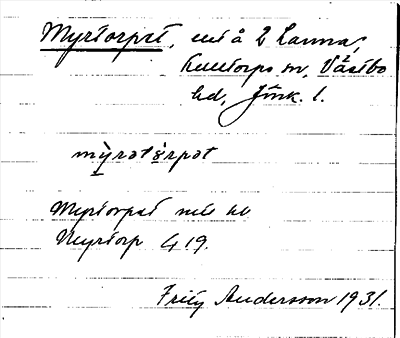 Myrtorpet, ut å 2 Lanna,
Kulltorps sn, Västbo
hd, Jönk. l.
my̱rətɵrpət
Myrtorpet
Myrtorp G 19.
Fritz Andersson 1931.